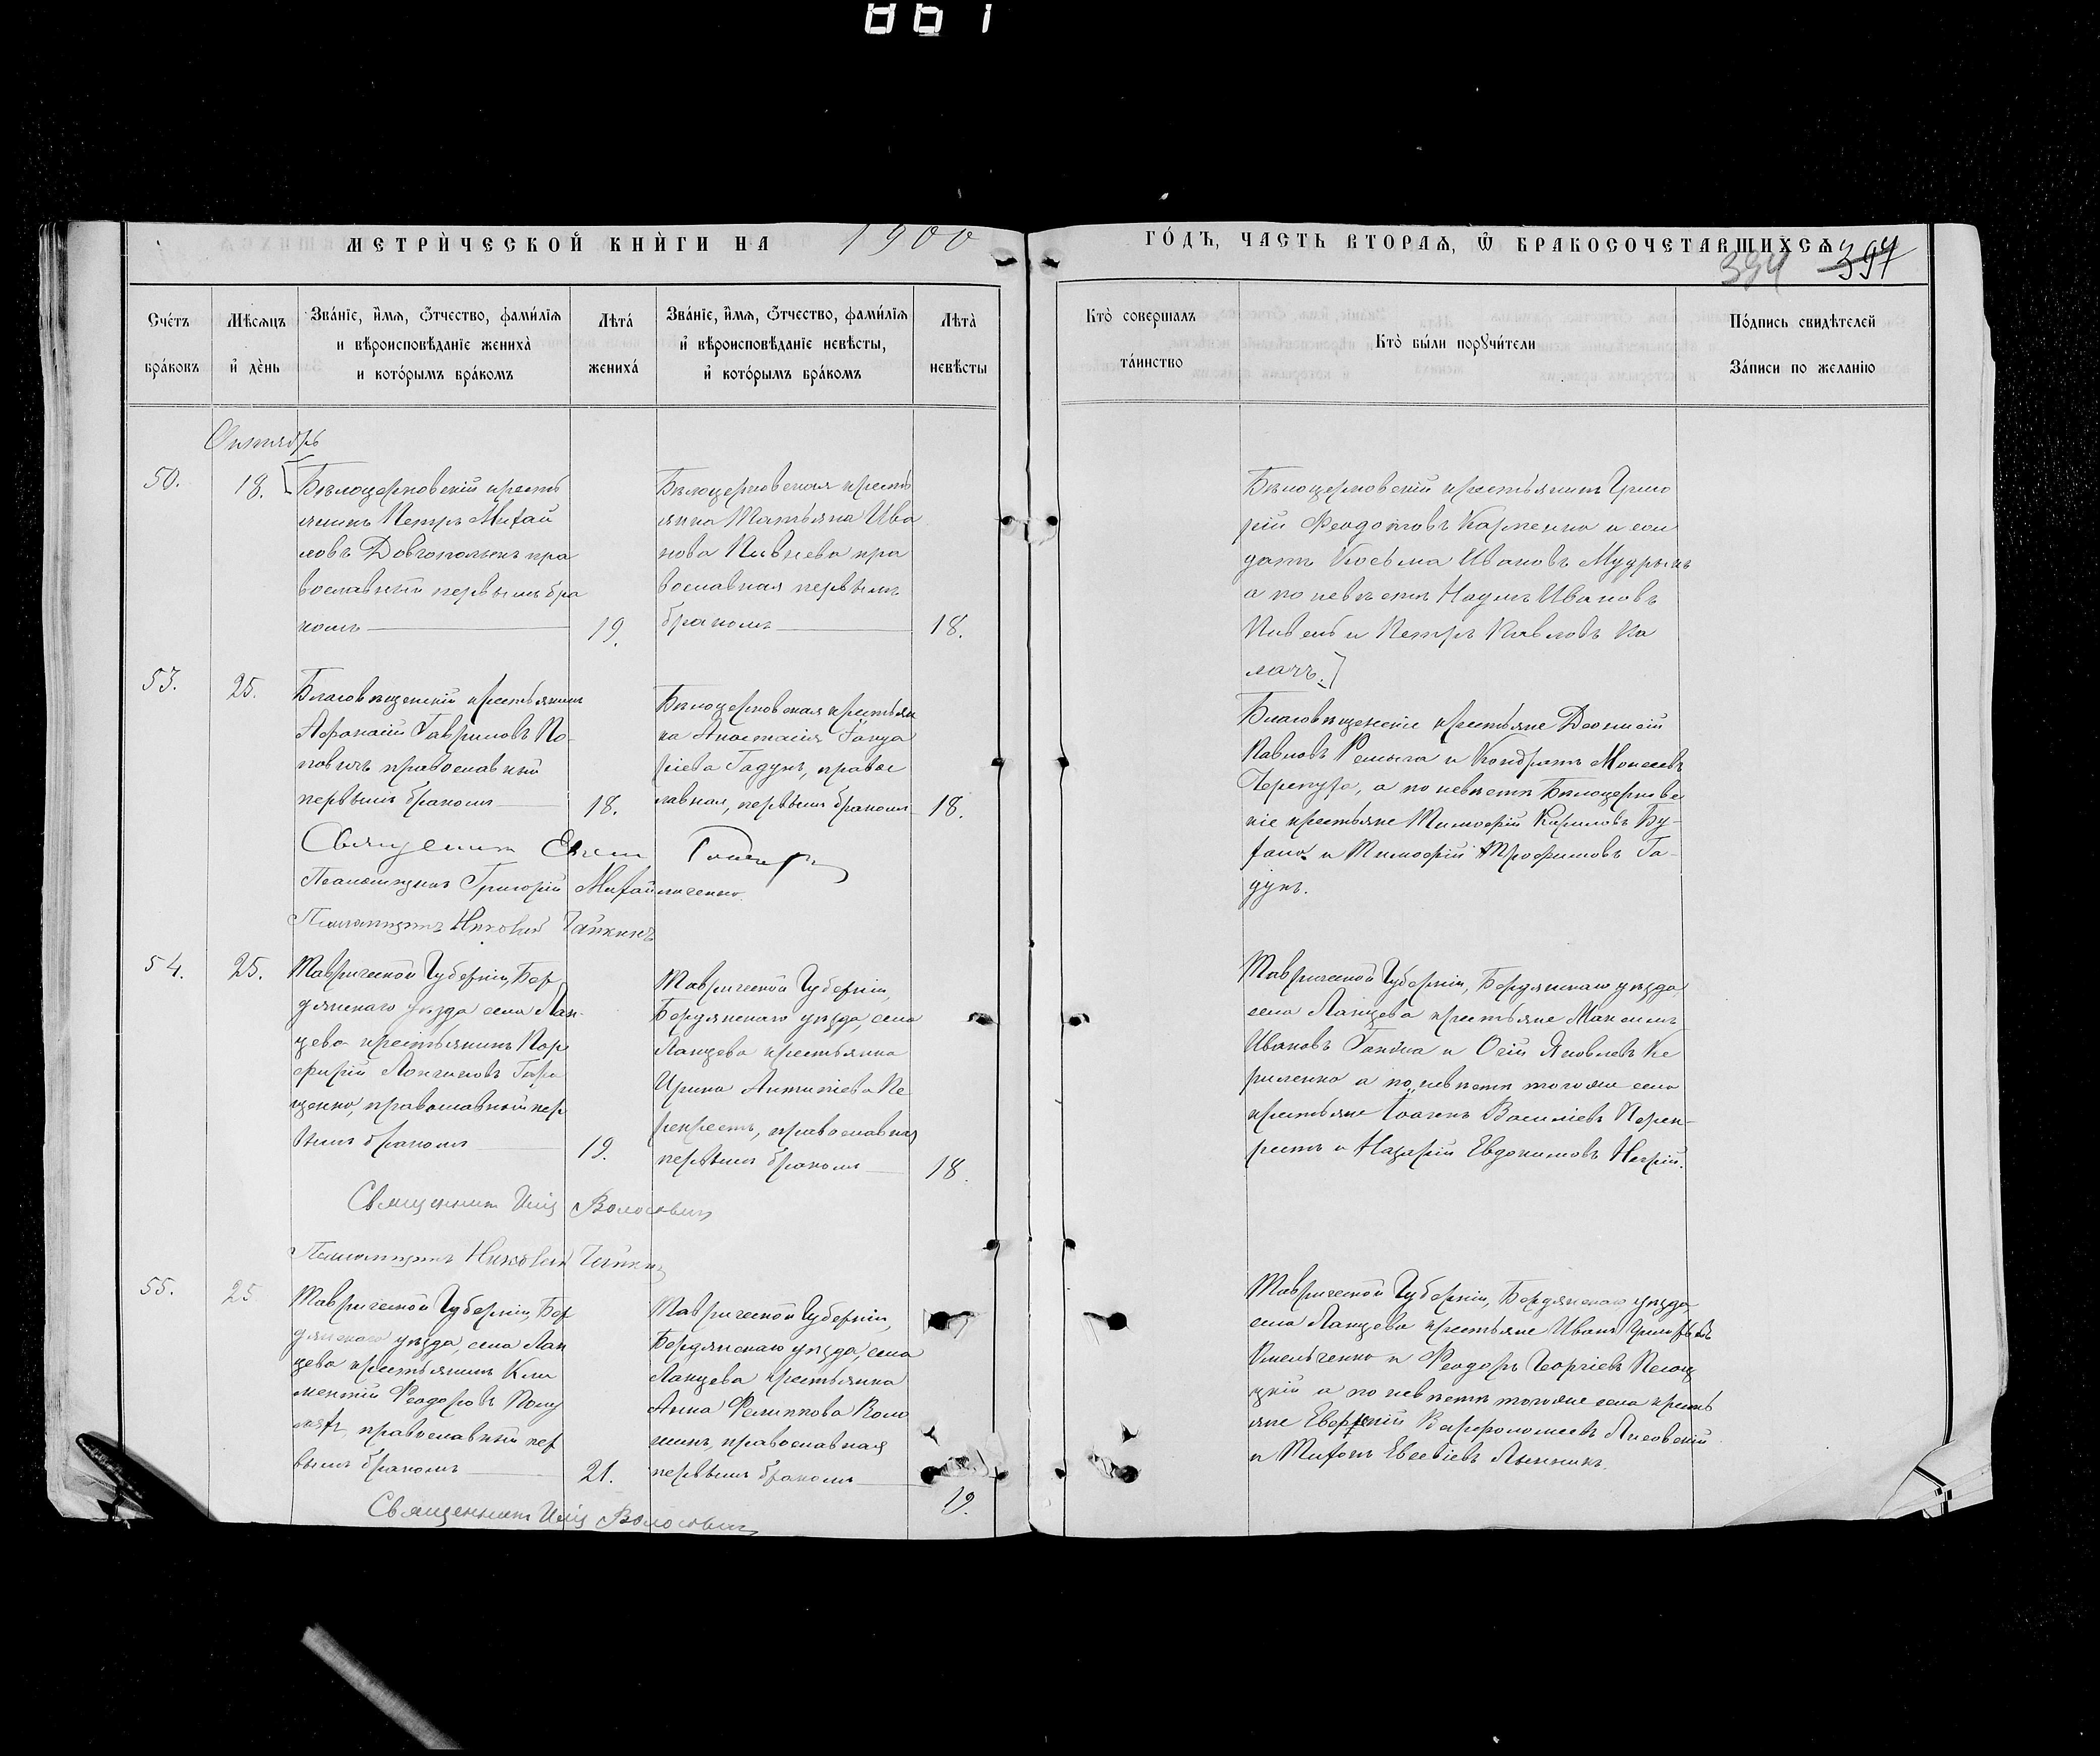 861
МЕТРИ́ЧЕСКОЙ КНИ́ГИ НА 1900
ГО́ДЪ, ЧАСТЬ ВТОРАѦ, Ѿ БРАКОСОЧЕТАВШИХСѦ
394 397
Сче́тъ бра́ковъ
Мѣсѧцъ и҆ де́нь
Зва́нїе, и҆́мѧ, ѻ҆́тчество, фами́лїѧ
и вѣроисповѣданїе жениха̀
и кото́рымъ бра́комъ
Лѣта́ жениха́
Зва́нїе, и҆́мѧ, ѻ҆́тчество, фами́лїѧ
и҆ вѣроисповѣданїе невѣсты,
и҆ кото́рымъ бра́комъ
Лѣта̀ невѣсты
Кто̀ совершалъ
та́инство
Кто̀ бы́ли порꙋчи́тели
По́дпись свидѣтелей
За́писи по желанїю
Октябрь
50.
18.
Бѣлоцерковскій кресть
янинъ Петръ Михай
ловъ Довгополыхъ пра
вославный первымъ бра
комъ
19.
Бѣлоцерковская кресть
янка Татьяна Ива
нова Пивнева пра
вославная первымъ
бракомъ
18.
Бѣлоцерковскій крестьянинъ Григо
рій Феодотовъ Карпенко и сол
датъ Косьма Ивановъ Мудрыхъ
а по невѣстѣ Наумъ Ивановъ
Пивень и Петръ Павловъ Ка
лачъ.
53.
25.
Благовѣщенскій крестьянинъ
Афанасій Гавриловъ По-
повичъ православный
первымъ бракомъ
18.
Бѣлоцерковская крестьян
ка Анастасія
ріева Гадунъ, правос
лавная, первымъ бракомъ
18.
Благовѣщенскіе крестьяне Деонисій
Павловъ и Кондратъ Моисеевъ
а по невѣстѣ Бѣлоцерковс
кіе крестьяне Тимофій Кириловъ Бу-
и Тимофій Трофимовъ Га-
дунъ.
Священникъ
Псаломщикъ Григорій Михайличенко
Псаломщикъ Николай Чайкинъ
54.
25.
Таврической Губерніи, Бер
дянскаго уѣзда села Лан-
цева крестьянинъ Пор
фирій Логгиновъ Гера
щенко, православный пер
вымъ бракомъ
19.
Таврической Губерніи,
Бердянскаго уѣзда, села
Ланцева крестьянка
Ирина Антипіева Пе
рекрестъ, православная
первымъ бракомъ
18.
Таврической Губерніи, Бердянскаго уѣзда
села Ланцева крестьяне Максимъ
Ивановъ и Яковлевъ Ки
риленко а по невѣстѣ того же села
крестьяне Іоаннъ Василіевъ Перек-
рестъ и Назарій Евдокимовъ
Священникъ Илія Волосовичъ
Псаломщикъ Николай Чайкинъ
55.
25
Таврической Губерніи, Бер
дянскаго уѣзда, села Лан
цева крестьянинъ Кли
ментій Феодоровъ
православный пер
вымъ бракомъ
21.
Таврической Губерніи,
Бердянскаго уѣзда, села
Ланцева крестьянка
Анна Филиппова
православная
первымъ бракомъ
19.
Таврической Губерніи, Бердянскаго уѣзда
села Ланцева крестьяне Иванъ Григорьевъ
Омельченко и Феодоръ Георгіевъ
а по невѣстѣ того же села кресть
яне Варфоломеевъ Лисовскій
и Тихонъ Евсевіевъ
Священникъ Илія Волосовичъ